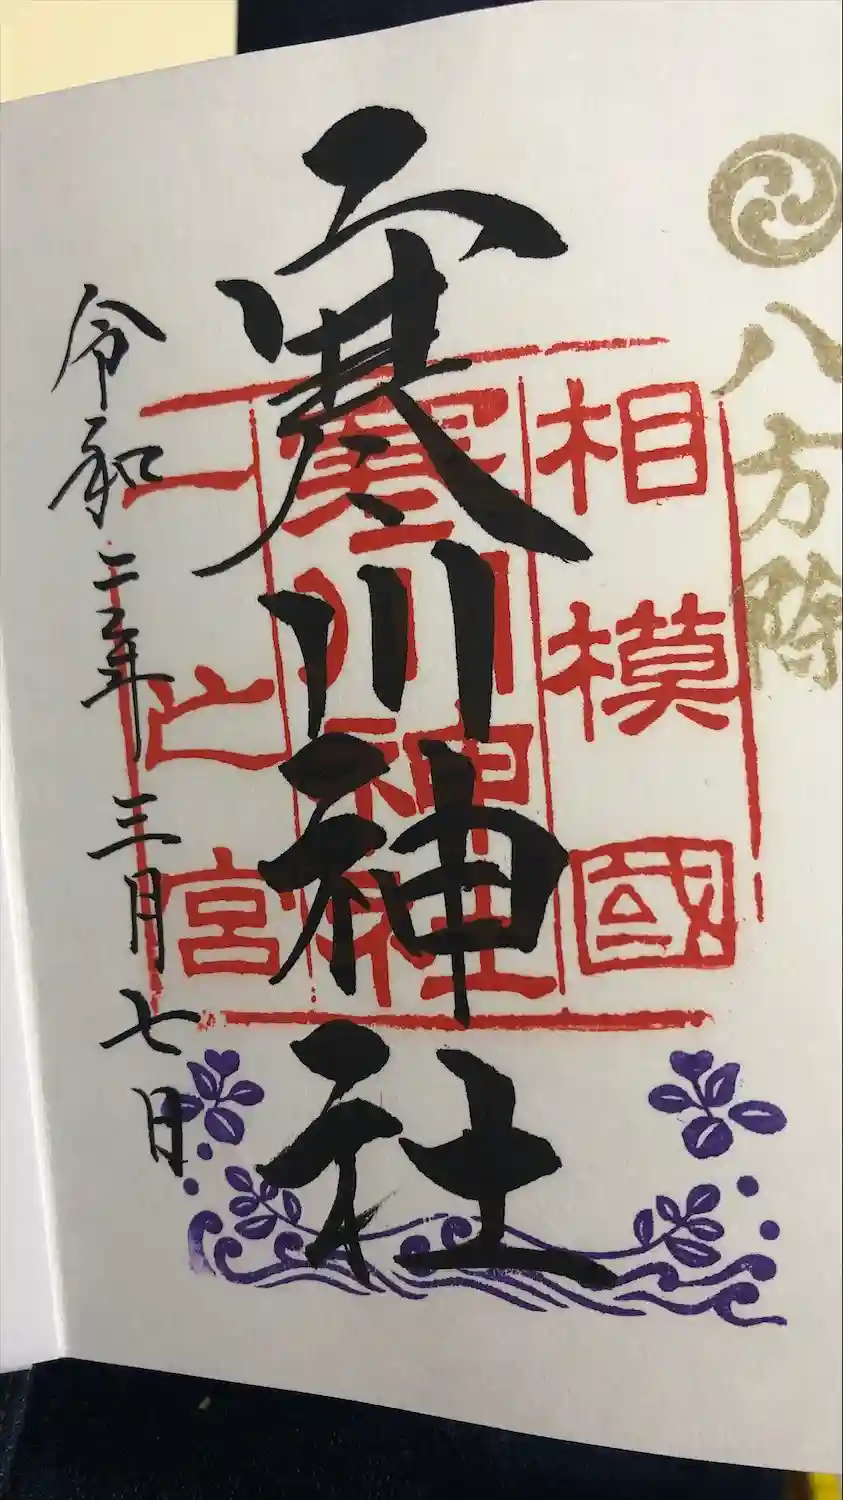 八方除
相模國
寒川神社
寒川神社
一之宮
令和二年三月七日